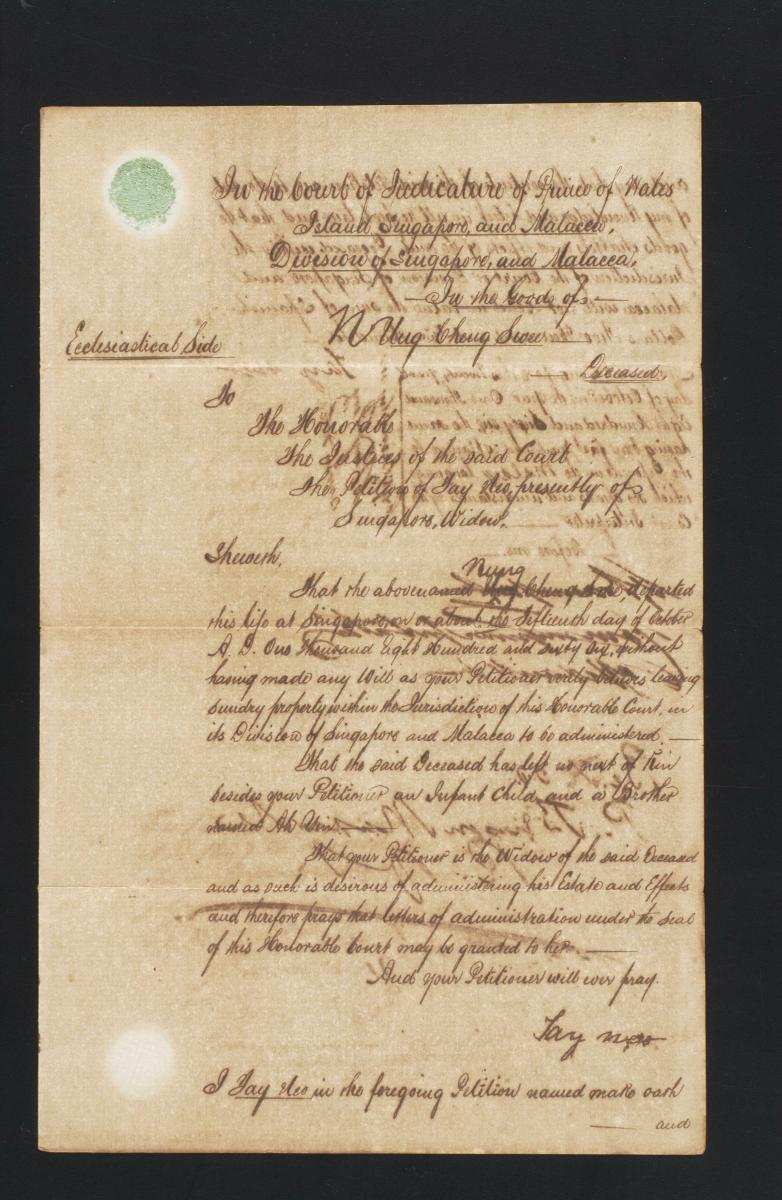 In the Court of Judicature of Prince of Wales
Island Singapore, and Malacca,
Division of Singapore, and Malacca.
In the Goods of
N Ung Cheng Swee
Ecclesiastical Side
Deceased.
To
The Honorable
The Justices of the said Court
The Petition of Tay Neo, presently of
Singapore, Widow.
Sheweth,
Nung
That the abovenamed Ung Cheng Swee, departed
this life at Singapore, on or about the Fifteenth day of October
A. D. One Thousand Eight Hundred and Sixty Six, without
having made any Will as your Petitioner verily believes leaving
Sundry property within the Jurisdiction of this Honorable Court, in
its Division of Singapore and Malacca to be administered.
That the said Deceased has left no next of Kin
besides your Petitioner an Infant Child and a Brother
named Ah
That your Petitioner is the Widow of the said Deceased
and as such is desirous of administering his Estate and Effects
and therefore prays that letters of administration under the seal
of this Honorable Court may be granted to her.
And your Petitioner will ever pray.
Tay neo
I Tay Neo in the foregoing Petition named make oath
and